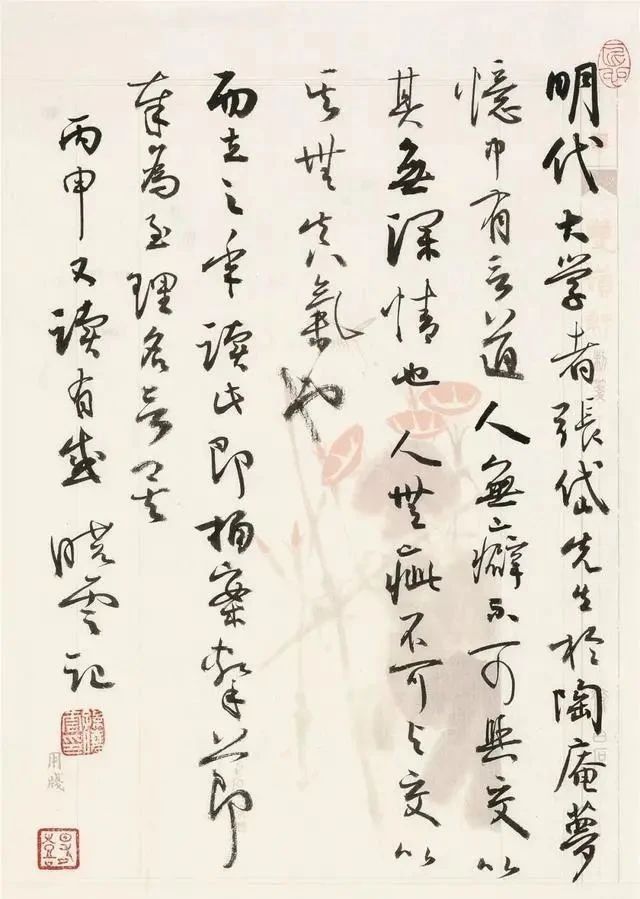 明代大学者張岱先生於陶庵夢
憶中有言道人無癖不可與交以
其無深情也人無疵不可與交以
其無真氣也
而立之年讀此即拍案擊節即
奉為至理名言矣
丙申又讀有感 晓雲記
用牋